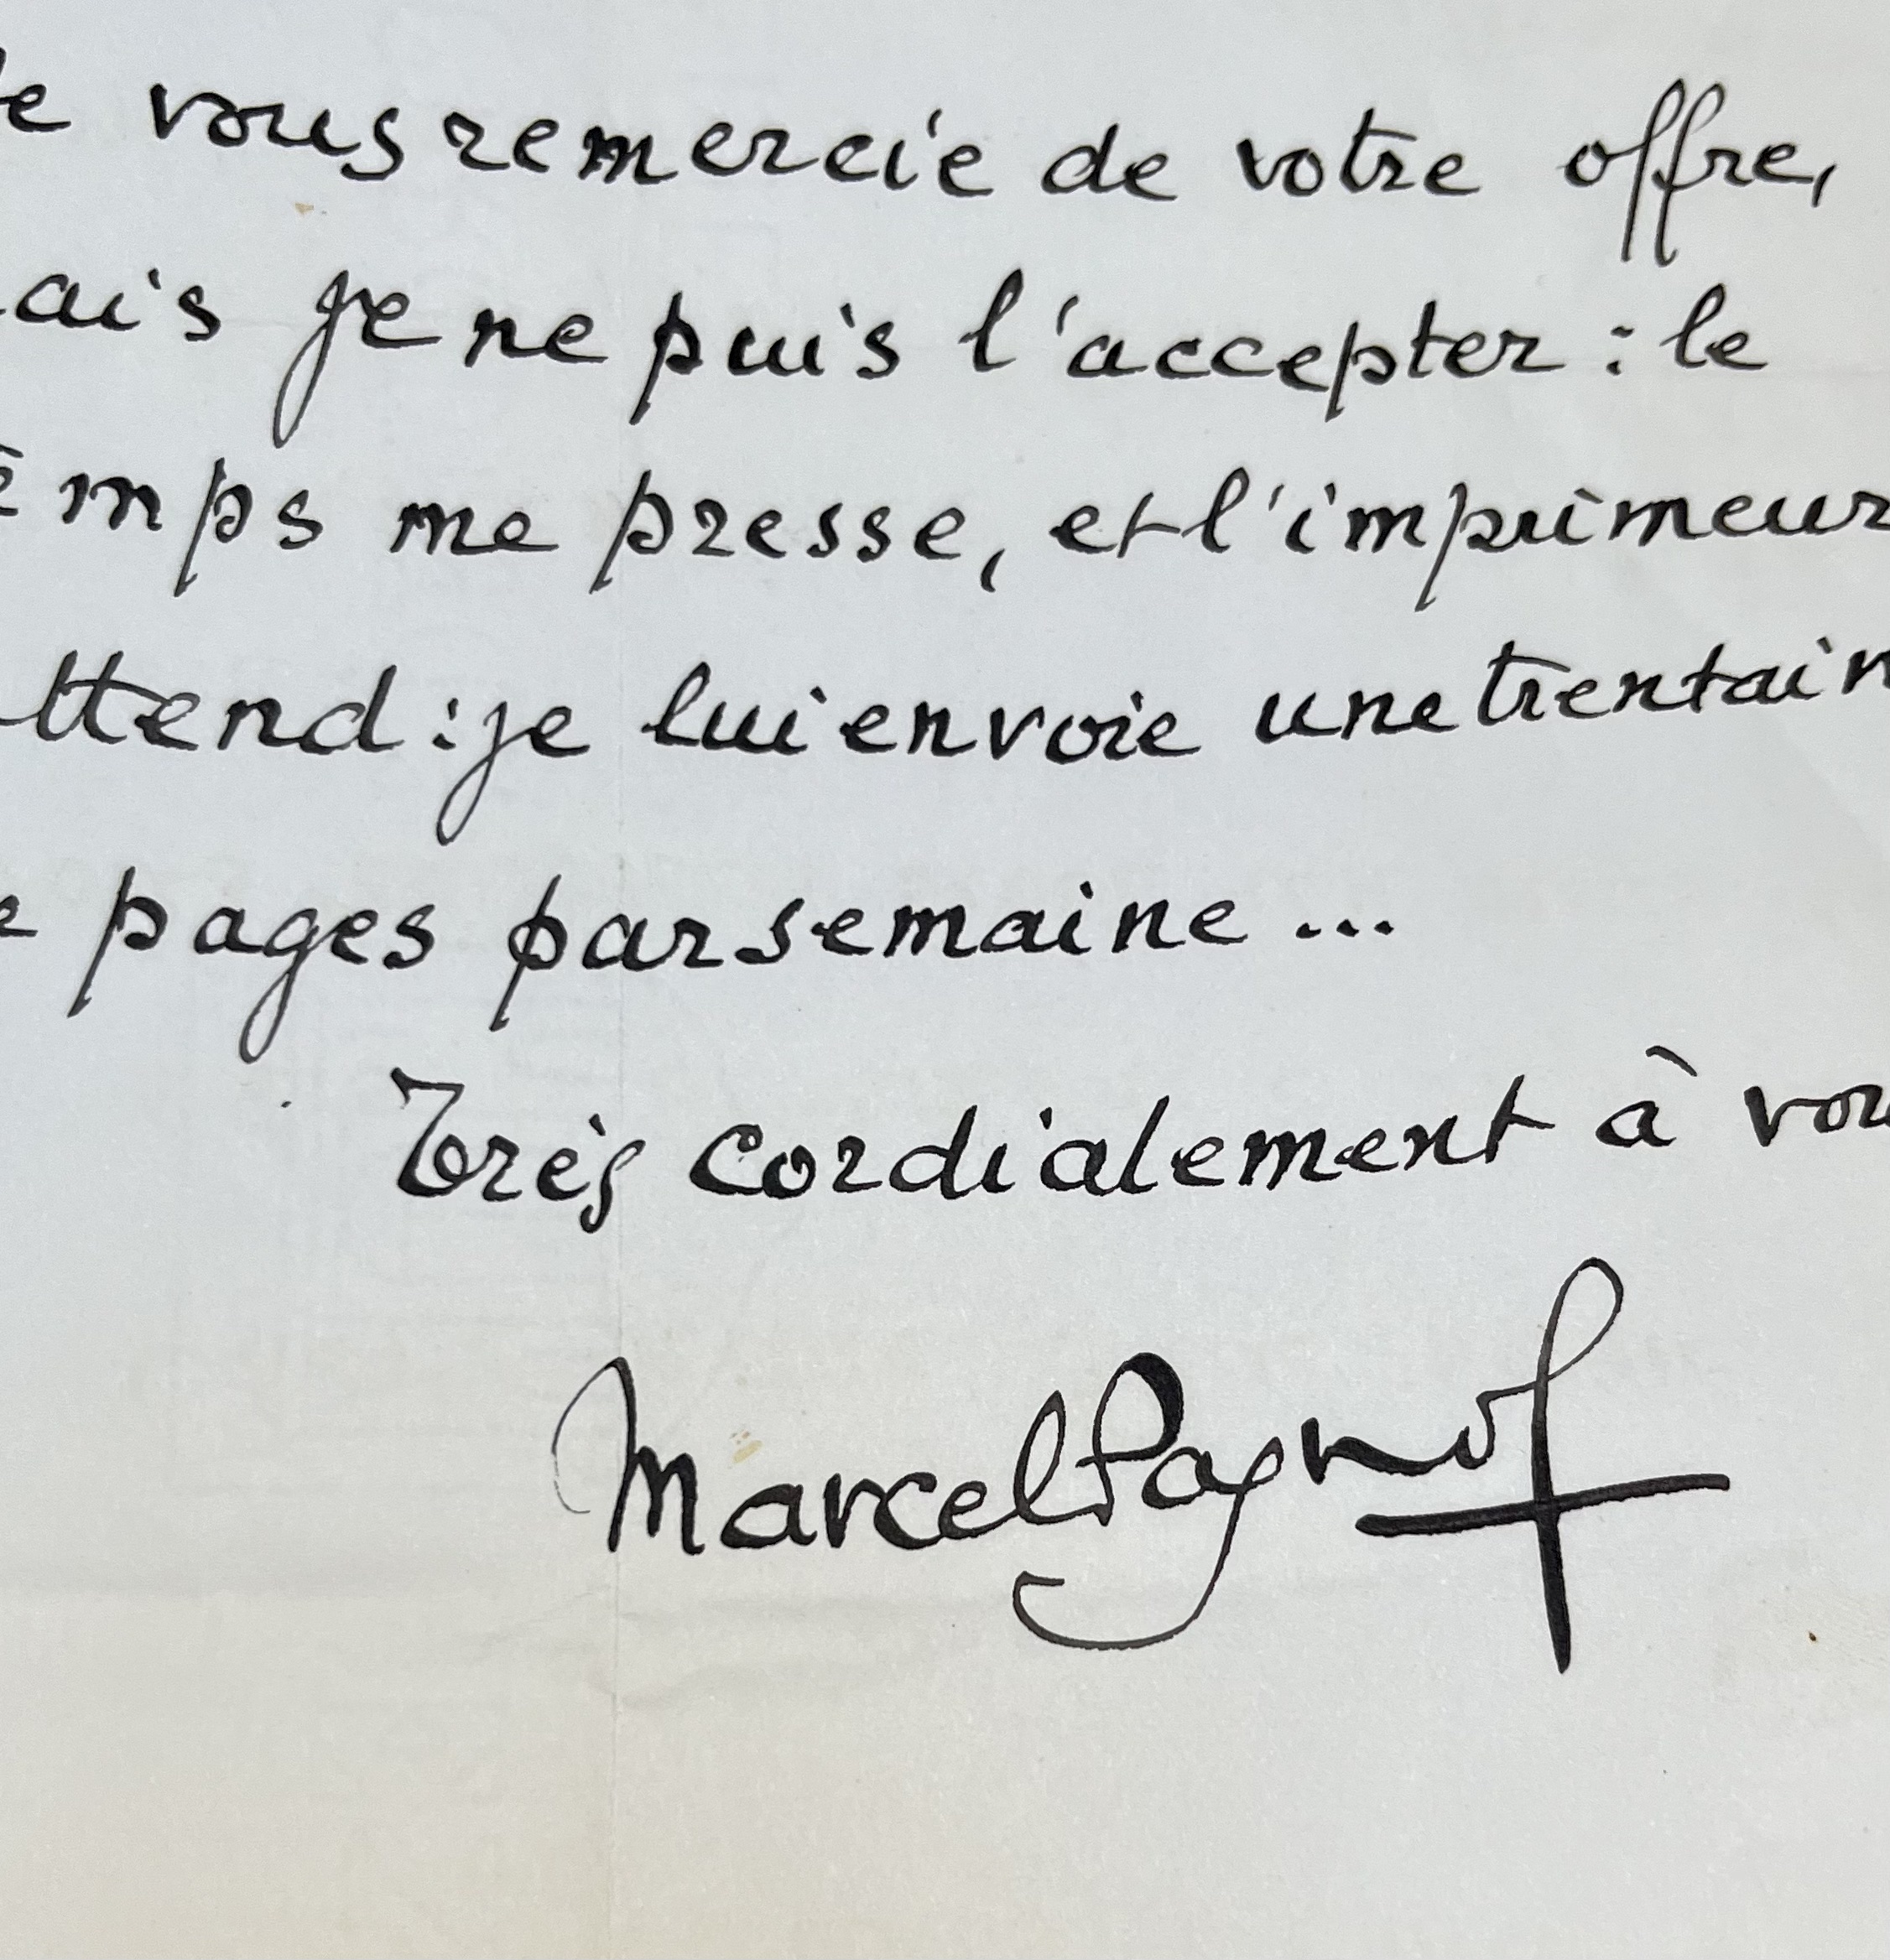 Je vous remercie de votre offre,
ais je ne puis l'accepter : le
emps me presse, et l'imprimeur
ttend : je lui envoie une trentain
e pages par semaine ...
Très cordialement à vou
Marcel Pagnol